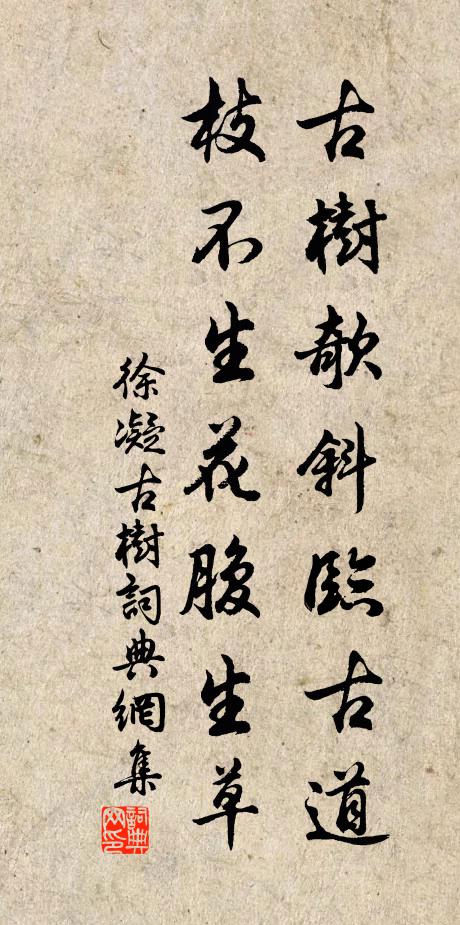 古樹欹斜臨古道
枝不生花腹生草
徐凝古樹詞典網集
詞典网印